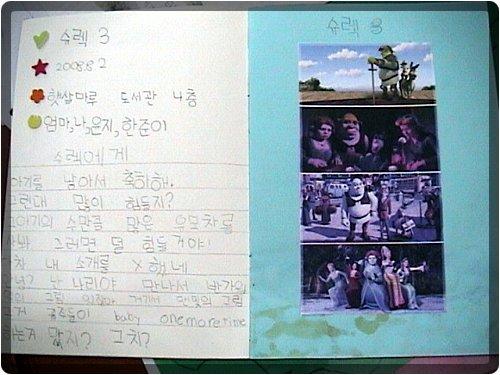 슈렉 3
2008.8 2
햇살마루 도서관 4층
엄마,나,윤지,한준이
슈렉에게
아기를 낳아서 축하해.
그런데 많이 힘들지?
아기의 수만큼 많은 유모차를
사봐 그러면 덜 힘들거야!
차 내 소개를 X했네
난 나리야 만나서 반가워
그림 있잖아 거기서 맨밑의 그림
공주들이 baby onemoretime
하는거 맞지? 그치?
슈렉 3